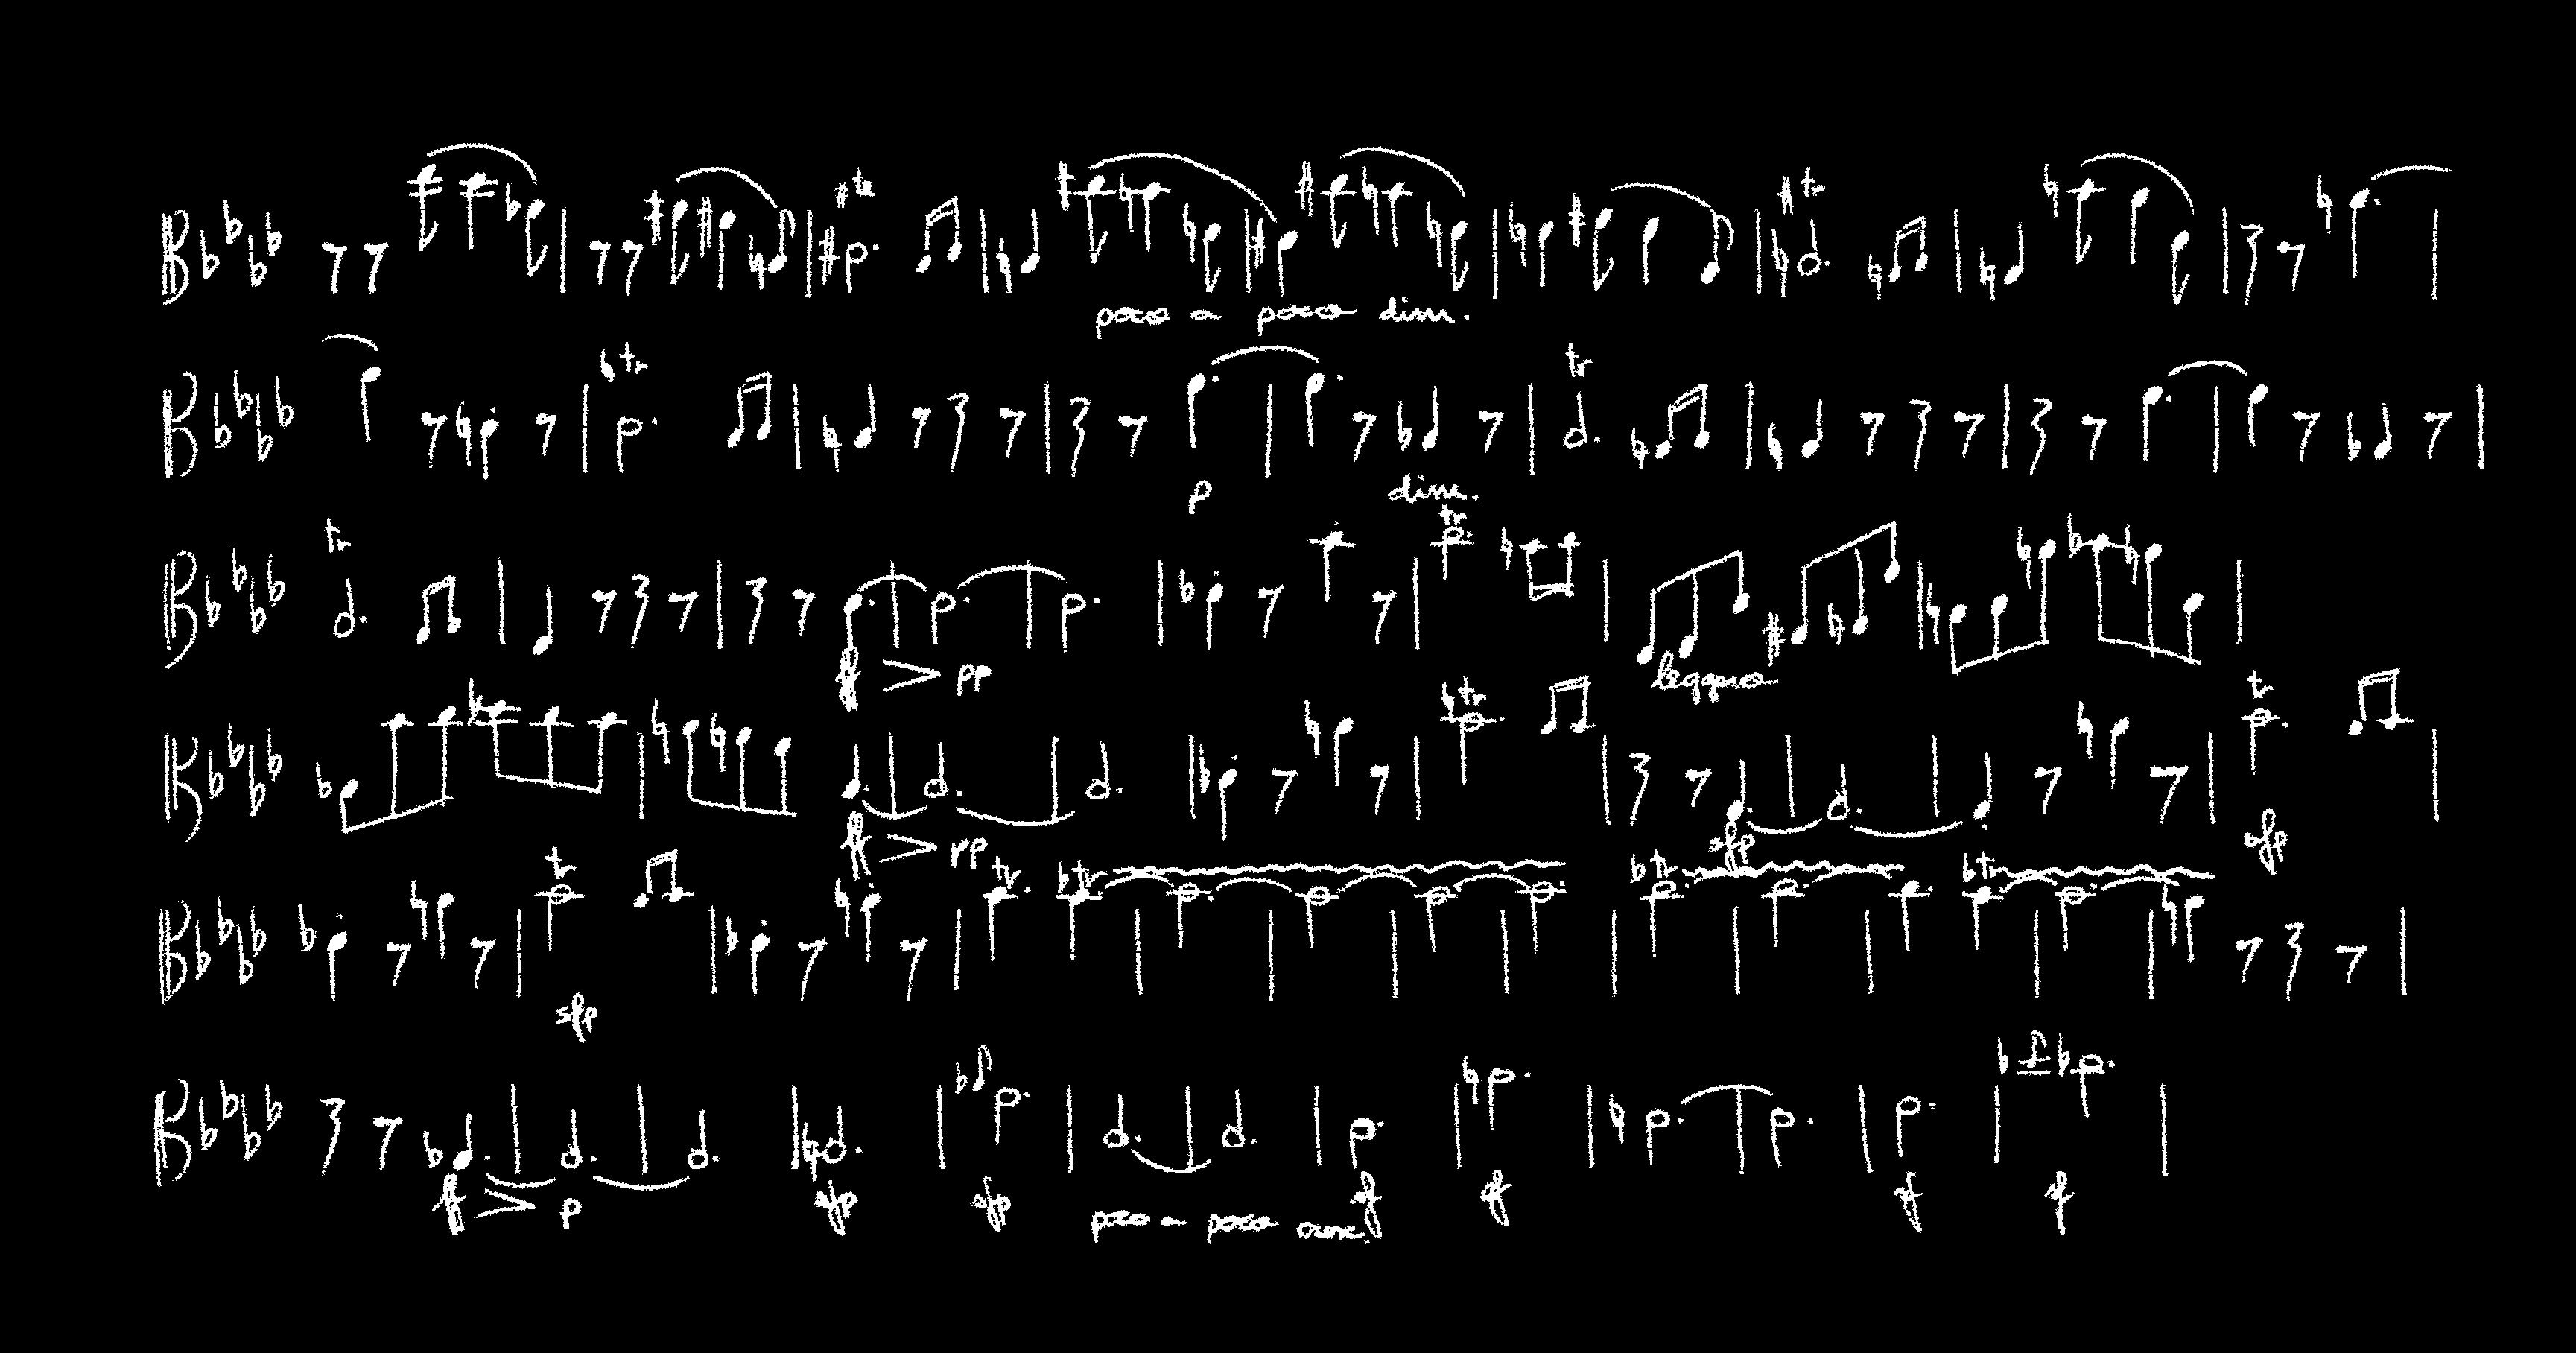 tr tr
poco a poco dim.
tr tr
p dim.
tr tr
ff pp leggiero
tr tr
ff pp sfp sfp
tr tr tr tr tr
sfp
ff p sfp sfp poco a poco cresc. sf sf sf sf